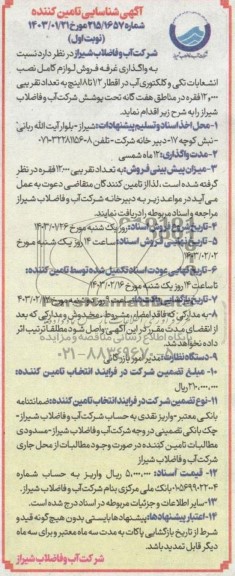 آگهی شناسایی تامین کننده
شماره ۲۱۵/۱۶۵۷ مورخ ۱۴۰۳/۰۱/۲۱
(نوبت اول)
شرکت آب و فاضلاب شیراز در نظر دارد نسبت
به واگذاری غرفه فروش لوازم کامل نصب
انشعابات تکی و کلکتوری آب در اقطار ۱/۲ تا ۸ اینچ به تعداد تقریبی
۱۲,۰۰۰ فقره در مناطق هفت گانه تحت پوشش شرکت آب و فاضلاب
شیراز را به شرح زیر اقدام نماید.
۱- محل اخذ اسناد و تسلیم پیشنهادات: شیراز - بلوار آیت الله ربانی
- نبش کوچه ۱۷ - دبیرخانه شرکت - تلفن ۸-۰۷۱۳۲۲۸۱۱۵۶
۲- مدت واگذاری: ۱۲ ماه شمسی
۳- میزان پیش بینی فروش: به تعداد تقریبی ۱۲,۰۰۰ فقره در نظر
گرفته شده است. لذا از تامین کنندگان متقاضی دعوت به عمل
می آید در مواعد زیر به دبیرخانه شرکت آب و فاضلاب شیراز
مراجعه و اسناد مربوطه را دریافت نمایند.
۴- تاریخ شروع فروش اسناد: روز یک شنبه مورخ ۱۴۰۳/۰۱/۲۶
۵- تاریخ نهایی فروش اسناد: ساعت ۱۴ روز یک شنبه مورخ
۱۴۰۳/۰۲/۰۲
۶- تاریخ نهایی عودت اسناد تکمیل شده توسط تامین کننده:
تا ساعت ۱۴ روز یک شنبه مورخ ۱۴۰۳/۰۲/۱۶
۷- تاریخ بازگشایی پاکت ها: ۱۴۰۳/۰۲/
۸- به مدارکی که فاقد امضاء، مشروط، مخدوش و مدارکی که بعد
از انقضای مدت مقرر در این آگهی واصل شود مطلقا ترتیب اثر
داده نخواهد شد.
۹- دستگاه نظارت: مدیر امور بازرگانی
۱۰- مبلغ تضمین شرکت در فرایند انتخاب تامین کننده:
۲۱۰,۰۰۰,۰۰۰ ریال
۱۱- نوع تضمین شرکت در فرایند انتخاب تامین کننده: ضمانتنامه
بانکی معتبر - واریز نقدی به حساب شرکت آب و فاضلاب شیراز -
چک بانکی تضمینی در وجه شرکت آب و فاضلاب شیراز - مسدودی
مطالبات تامین کننده در صورت وجود مطالبات از محل جاری
شرکت آب و فاضلاب شیراز
۱۲- قیمت اسناد: ۵,۰۰۰,۰۰۰ ریال واریز به حساب شماره
بانک ملی مرکزی بنام شرکت آب و فاضلاب شیراز.
۱۳- سایر اطلاعات و جزئیات مربوطه در اسناد درج شده است.
۱۴- اعتبار پیشنهادها: پیشنهادها بایستی بدون هیچ گونه قید و
شرط از تاریخ بازگشایی پاکات به مدت سه ماه معتبر و برای سه ماه
دیگر قابل تمدید باشد.
شرکت آب و فاضلاب شیراز